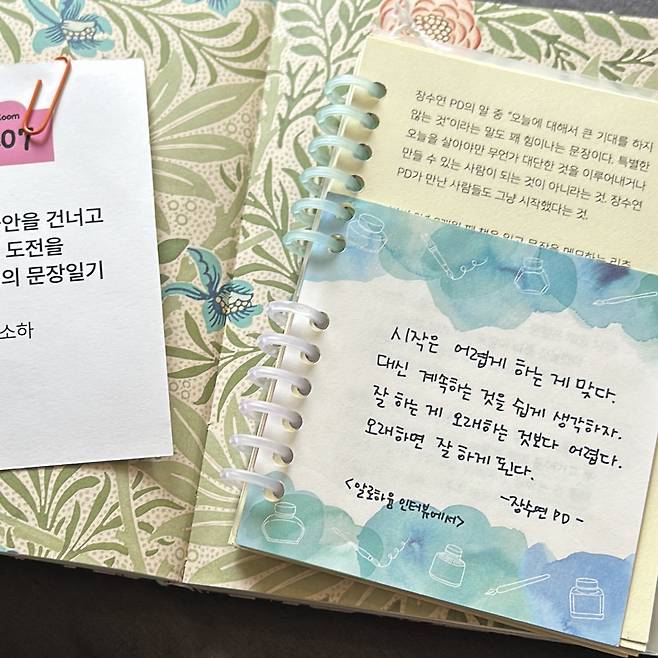 oom
07
안을 건너고
도전을
의 문장일기
소하
장수연 PD의 말 중 "오늘에 대해서 큰 기대를 하지
않는 것"이라는 말도 꽤 힘이나는 문장이다. 특별한
오늘을 살아야만 무언가 대단한 것을 이루어내거나
만들 수 있는 사람이 되는 것이 아니라는 것. 장수연
PD가 만난 사람들도 그냥 시작했다는 것.
시작은 어렵게 하는 게 맞다.
대신 계속하는 것을 쉽게 생각하자.
잘 하는 게 오래하는 것보다 어렵다.
오래하면 잘하게 된다.
-장수연 PD-
<알로하융 인터뷰에서>